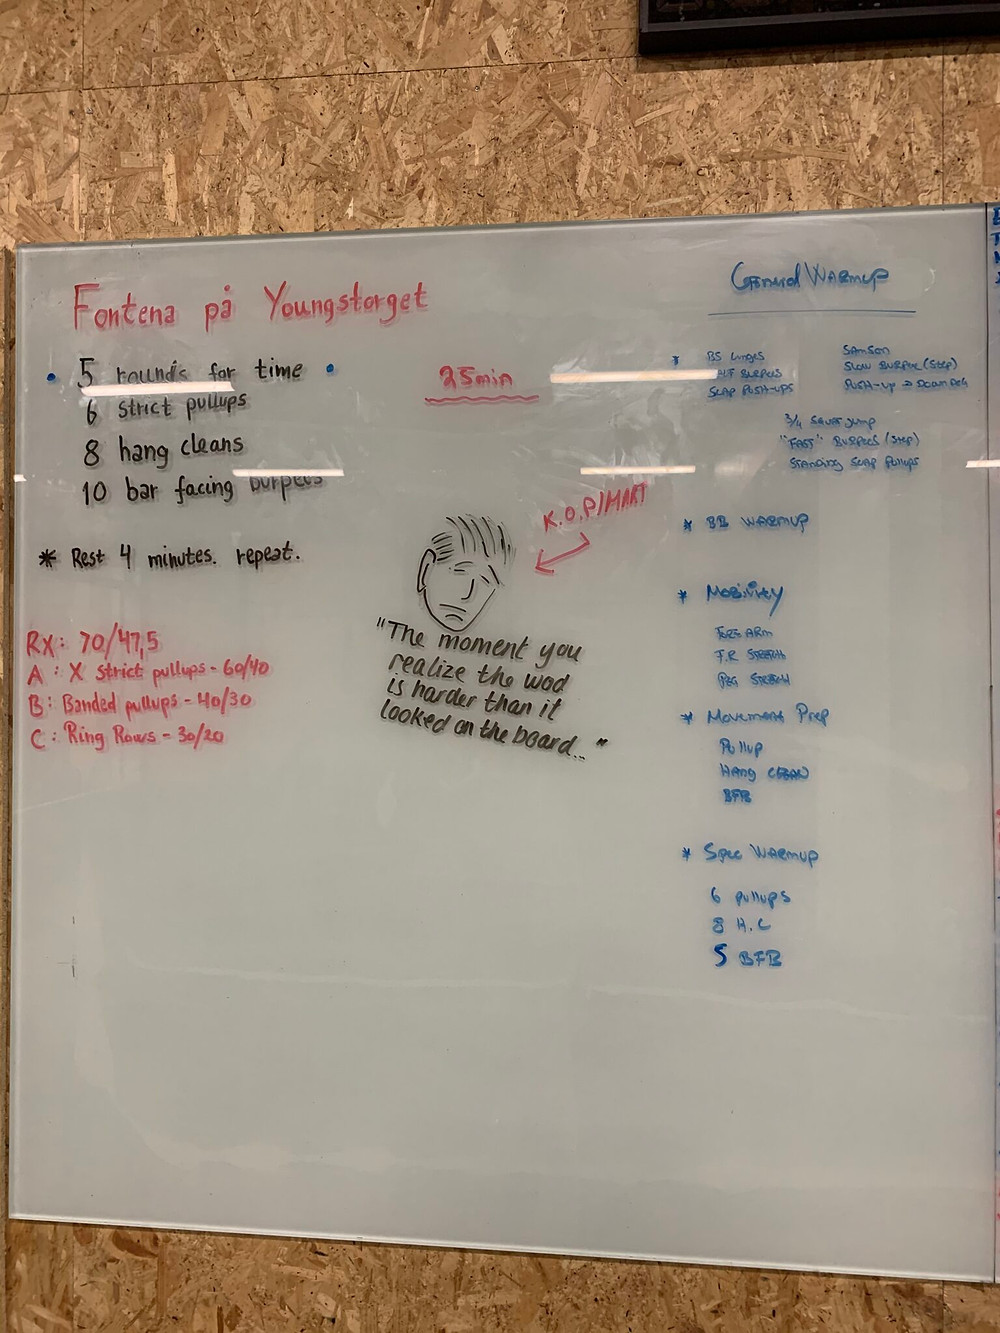 Fontena på Youngstorget
• 5 rounds for time •
6 strict pullups
8 hang cleans
10 bar facing burpees
* Rest 4 minutes. repeat.
25min
RX: 70/47,5
A: X Strict pullups - 60/40
B: Banded pullups - 40/30
C: Ring Rows - 30/20
K.O.P/MART
"The moment you
realize the wod
is harder than it
looked on the board..."
General Warmup
* BS Lunges
Half Burpees
Scap Push-ups
Samson
Slow Burpee (Step)
Push-up → Down Dog
3/4 Squat Jump
"Fast" Burpees (Step)
Standing Scap Pullups
* BB Warmup
* Mobility
Forearm
F.R Stretch
Stretch
* Movement Prep
Pullup
Hang Clean
BFB
* Spec Warmup
6 pullups
8 H.C
5 BFB